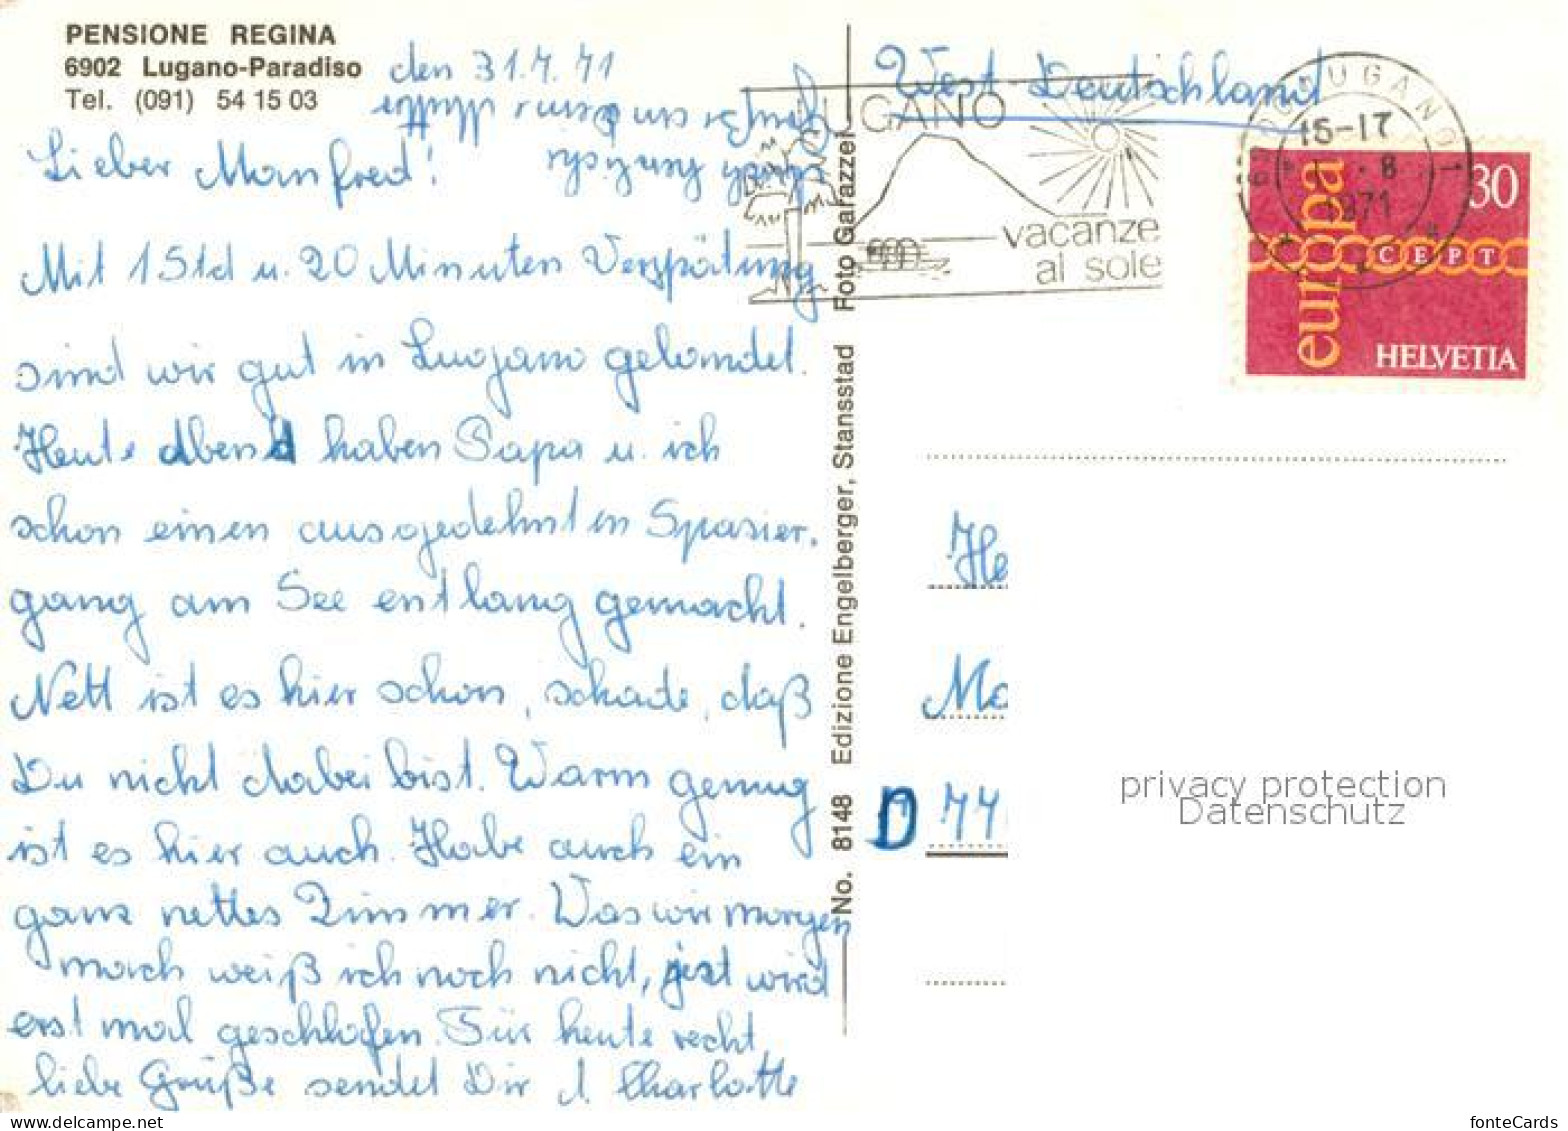 PENSIONE REGINA
6902 Lugano-Paradiso
Tel. (091) 54 15 03
den 31.7.71
Lieber Manfred!
Mit 1 Std u. 20 Minuten Verspätung
sind wir gut in Lugano gelandet.
Heute Abend haben Papa u. ich
schon einen ausgedehnten Spazier-
gang am See entlang gemacht.
Nett ist es hier schon, schade, daß
Du nicht dabei bist. Warm genug
ist es hier auch. Habe auch ein
ganz nettes Zimmer. Was wir morgen
mach weiß ich noch nicht, jezt wird
erst mal geschlafen. Für heute recht
liebe Grüße sendet Dir d. Charlotte
No. 8148 Edizione Engelberger, Stansstad Foto Garazzei
West-Deutschland
LUGANO
vacanze
al sole
6900 LUGANO 1
15-17
8
1971
europa
CEPT
30
HELVETIA
He
Ma
D 77
privacy protection
Datenschutz
fonteCards